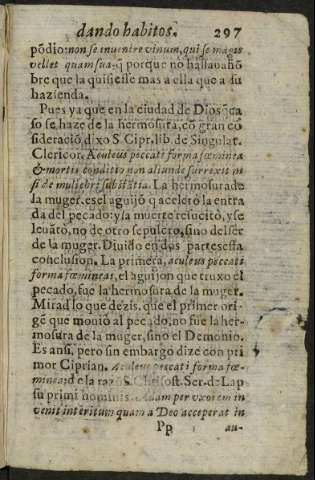 dando habitos. 297
põdio: non se inuenire vinum, qui se magis
vellet quam sua: q̃ porque no hallaua hõ
bre que la quisiesse mas a ella que a su
hazienda.
Pues ya que en la ciudad de Dios q̃ca
so se haze de la hermosura, cõ gran cõ
sideració dixo S. Cipr. lib. de Singular.
Clericor. Aculeus peccati forma fœminea
& mortis conditio non aliunde surrexit ni
si de muliebri substãtia. La hermosura de
la muger, es el aguijõ q̃ aceleró la entra
da del pecado: y la muerte resucitó, y se
leuãtó, no de otro sepulcro, sino del ser
de la muger. Diuido en dos partes esta
conclusion. La primera, aculeus peccati
forma fœmineas, el aguijon que truxo el
pecado, fue la hermosura de la muger.
Mirad lo que dezis, que el primer ori-
gẽ que mouió al pecado, no fue la her-
mosura de la muger, sino el Demonio.
Es ansi, pero sin embargo dize con pri
mor Ciprian. Aculeus peccati forma fœ-
minea: d e la razõ S. Chrisost. Ser. de Lap
su primi hominis. Adam per vxorem in
venit interitum quam a Deo acceperat in
Pp au-